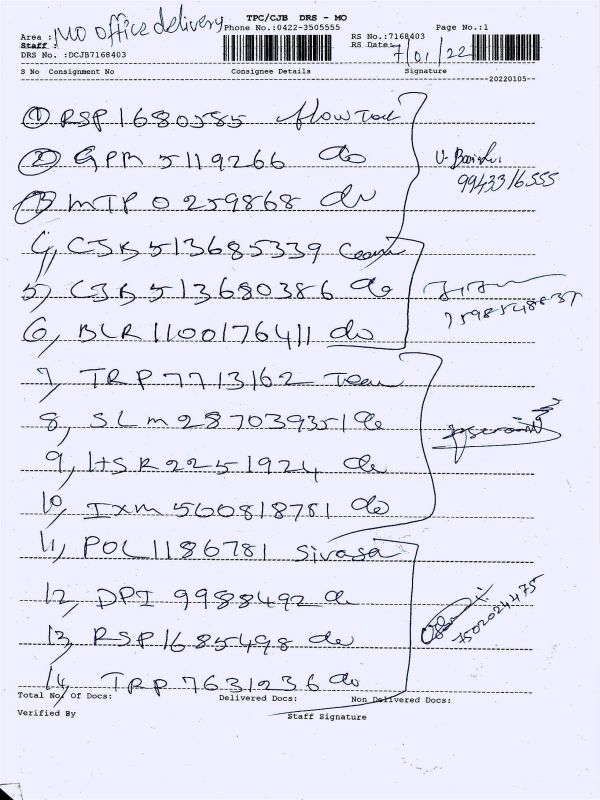 MO office delivery
TPC/CJB DRS - MO
Phone No.:0422-3505555
Page No.:1
Area :
Staff :
RS No.:7168403
RS Date: 7/01/22
DRS No. :DCJB7168403
S No Consignment No Consignee Details Signature
20220105
1 RSP1680585 flowtech
2 GPM 5119266 do
V. 
9943316555
3 MTP 0259868 do
4, CJB 513685339
5) CJB 513680386 do
7598548837
6, BLR 1100176411 do
7, TRP 7713162 Team
8, SLM 287039351 do
9, HSR 2251924 do
10, IXM 560818781 do
11, POL 1186781 Sivasa
12, DPI 9988492 do
7502024475
13, RSP1685498 do
14, TRP 7631236 do
Total No. Of Docs: Delivered Docs: Non Delivered Docs:
Verified By Staff Signature